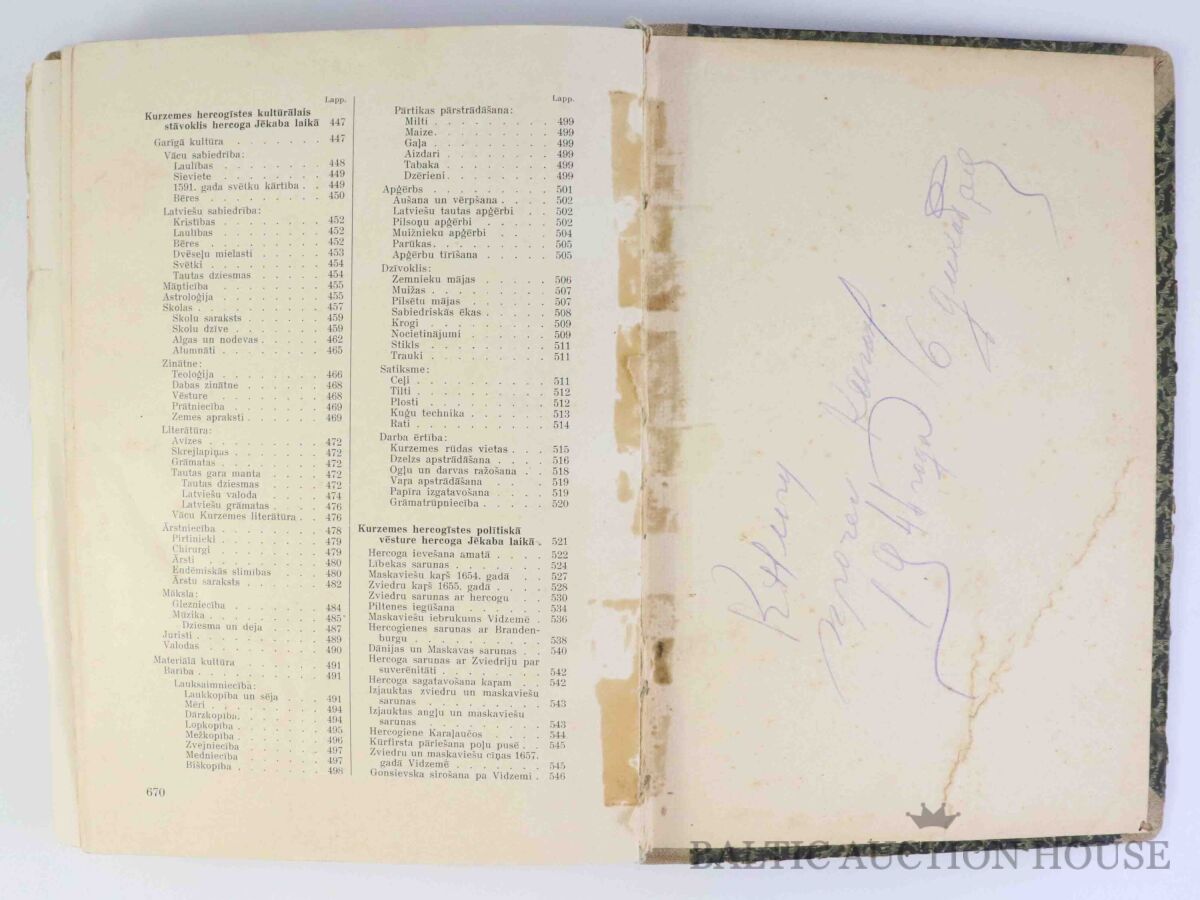 Lapp.
Kurzemes hercogistes kultūrālais
stāvoklis hercoga Jēkaba laikā 447
Garīgā kultūra . . . . . . . 447
Vācu sabiedrība:
Laulības . . . . . . . 448
Sieviete . . . . . . . 449
1591. gada svētku kārtība . . 449
Bēres . . . . . . . 450
Latviešu sabiedrība:
Kristības . . . . . . . 452
Laulības . . . . . . . 452
Bēres . . . . . . . 452
Dvēseļu mielasti . . . . . 453
Svētki . . . . . . . 454
Tautas dziesmas . . . . . 454
Māņticība . . . . . . . 455
Astroloģija . . . . . . . 455
Skolas . . . . . . . 457
Skolu saraksts . . . . . 459
Skolu dzīve . . . . . . 459
Algas un nodevas . . . . . 462
Alumnāti . . . . . . . 465
Zinātne:
Teoloģija . . . . . . . 466
Dabas zinātne . . . . . . 468
Vēsture . . . . . . . 468
Prātniecība . . . . . . 469
Zemes apraksti . . . . . . 469
Literātūra:
Avīzes . . . . . . . 472
Skrejlapiņas . . . . . . 472
Grāmatas . . . . . . . 472
Tautas gara manta . . . . . 472
Tautas dziesmas . . . . . 472
Latviešu valoda . . . . . 474
Latviešu grāmatas . . . . . 476
Vācu Kurzemes literātūra . . 476
Ārstniecība . . . . . . . 478
Pirtinieki . . . . . . . 479
Chirurgi . . . . . . . 479
Ārsti . . . . . . . 480
Endēmiskās slimības . . . . 480
Ārstu saraksts . . . . . . 482
Māksla:
Glezniecība . . . . . . 484
Mūzika . . . . . . . 485
Dziesma un deja . . . . . 487
Juristi . . . . . . . 489
Valodas . . . . . . . 490
Materiālā kultūra . . . . . 491
Barība . . . . . . . 491
Lauksaimniecība:
Laukkopība un sēja . . . . 491
Mēri . . . . . . . 494
Dārzkopība . . . . . . 494
Lopkopība . . . . . . 495
Mežkopība . . . . . . 496
Zvejniecība . . . . . . 497
Medniecība . . . . . . 497
Biškopība . . . . . . 498
670
Lapp.
Pārtikas pārstrādāšana:
Milti . . . . . . . 499
Maize . . . . . . . 499
Gaļa . . . . . . . 499
Aizdari . . . . . . . 499
Tabaka . . . . . . . 499
Dzērieni . . . . . . . 499
Apģērbs . . . . . . . 501
Aušana un vērpšana . . . . 502
Latviešu tautas apģērbi . . 502
Pilsoņu apģērbi . . . . . 502
Muižnieku apģērbi . . . . 504
Parūkas . . . . . . . 505
Apģērbu tīrīšana . . . . . 505
Dzīvoklis:
Zemnieku mājas . . . . . 506
Muižas . . . . . . . 507
Pilsētu mājas . . . . . . 507
Sabiedriskās ēkas . . . . . 508
Krogi . . . . . . . 509
Nocietinājumi . . . . . . 509
Stikls . . . . . . . 511
Trauki . . . . . . . 511
Satiksme:
Ceļi . . . . . . . 511
Tilti . . . . . . . 512
Plosti . . . . . . . 512
Kuģu technika . . . . . . 513
Rati . . . . . . . 514
Darba ērtība:
Kurzemes rūdas vietas . . . 515
Dzelzs apstrādāšana . . . . 516
Ogļu un darvas ražošana . . 518
Vaŗa apstrādāšana . . . . . 519
Papīra izgatavošana . . . . 519
Grāmatrūpniecība . . . . . 520
Kurzemes hercogistes polītiskā
vēsture hercoga Jēkaba laikā . 521
Hercoga ievešana amatā . . . 522
Lībekas sarunas . . . . . . 524
Maskaviešu kaŗš 1654. gadā . . 527
Zviedru kaŗš 1655. gadā . . . 528
Zviedru sarunas ar hercogu . . 530
Piltenes iegūšana . . . . . 534
Maskaviešu iebrukums Vidzemē . 536
Hercogienes sarunas ar Branden-
burgu . . . . . . . 538
Dānijas un Maskavas sarunas . . 540
Hercoga sarunas ar Zviedriju par
suverēnitāti . . . . . . 542
Hercoga sagatavošana kaŗam . . 542
Izjauktas zviedru un maskaviešu
sarunas . . . . . . . 543
Izjauktas angļu un maskaviešu
sarunas . . . . . . . 543
Hercogiene Karaļaučos . . . . 544
Kūrfirsta pāriešana poļu pusē . . 545
Zviedru un maskaviešu cīņas 1657.
gadā Vidzemē . . . . . . 545
Gonsievska sirošana pa Vidzemi . 546
BALTIC AUCTION HOUSE